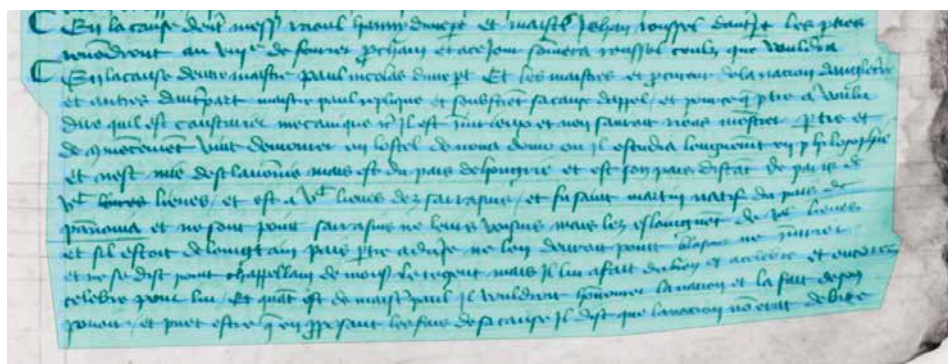 En la cause dent mess raoul hanny dunept et maistre Jehan roussel dautre les pties
revendront au vij e de fevrier pchain et ace Jour sommera roussel ceulx que vouldra
En la cause dentre maistre paul nicolas dune pt Et les maistres et pcureur dela nacion dangleterre
et autres dautrepart maistre paul replique et soubstient sa cause dappel / et pour ce q ptie a voulu
dire quil est mecanique il est et non sauroit riens monstrer ptie et
de vint demourer en lostel de nova domo ou il estudia longuement en philosophie
et nest mie desclavonie mais est du pais de hongrie et est son pais distat de paris de
v c lieues / et est a v c lieues dez sarrasins / et fu saint martin natif du pais de
pannonia et ne sont point sarrasins ne leurs voisins mais lez eslonguet de lieues
et sil estoit de longtain pais ptie adverse ne len devroit point blasmer ne
et ne se dist point chappellain de mons le regent mais Il lui a fait et celebre et encores
celebre pour lui / Et quat est de maistre paul Il vouldroit honnourer la nacion et la fait de son
pouoir / et puet estre q en pposant les fais de sa cause Il dist que la nacion estoit